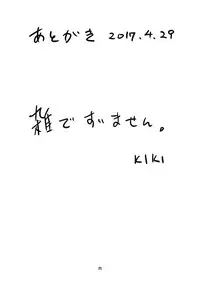 あとがき 2017.4.29
雑ですいません。
KIKI